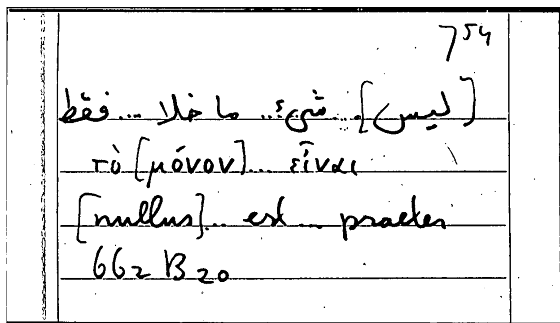 7 54
[ليس] ... شيء ... ما خلا ... فقط
τὸ [μόνον] ... εἶναι
[nullus] ... est ... praeter
662 B 20